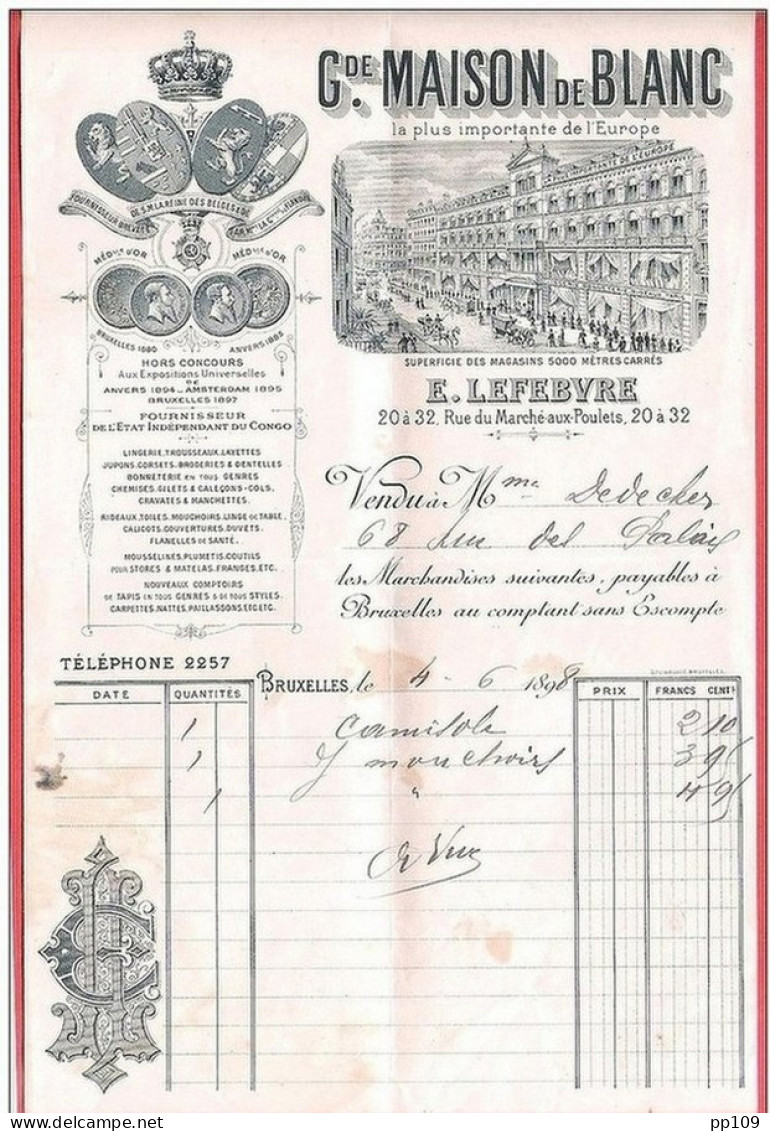 GDE. MAISON DE BLANC
la plus importante de l'Europe
FOURNISSEUR BREVETÉ
DE S.M. LA REINE DES BELGES & DE
S.A.R. Mme LA Ctesse DE FLANDRE
MÉDlle D'OR MÉDlle D'OR
BRUXELLES 1880 ANVERS 1885
HORS CONCOURS
Aux Expositions Universelles
DE
ANVERS 1894_AMSTERDAM 1895
BRUXELLES 1897
FOURNISSEUR
DE L'ETAT INDÉPENDANT DU CONGO
LINGERIE, TROUSSEAUX, LAYETTES
JUPONS, CORSETS, BRODERIES & DENTELLES
BONNETERIE EN TOUS GENRES
CHEMISES, GILETS & CALEÇONS-COLS,
CRAVATES & MANCHETTES.
RIDEAUX, TOILES, MOUCHOIRS, LINGE DE TABLE,
CALICOTS, COUVERTURES, DUVETS,
FLANELLES DE SANTÉ.
MOUSSELINES, PLUMETIS, COUTILS
POUR STORES & MATELAS, FRANGES, ETC.
NOUVEAUX COMPTOIRS
DE TAPIS EN TOUS GENRES & DE TOUS STYLES.
CARPETTES, NATTES, PAILLASSONS, ETC. ETC.
DE L'EUROPE
SUPERFICIE DES MAGASINS 5000 MÈTRES CARRÉS
E. LEFEBVRE
20 à 32, Rue du Marché-aux-Poulets, 20 à 32
Vendu à Mme Dedecker
68 rue del Palais
les Marchandises suivantes, payables à
Bruxelles au comptant sans Escompte
TÉLÉPHONE 2257
BRUXELLES, le 4 - 6 1898
DATE QUANTITÉS PRIX FRANCS CENTs
1 camisole 2 10
1 7 mouchoirs 3 95
1 " 4 95
delcampe.net
pp109